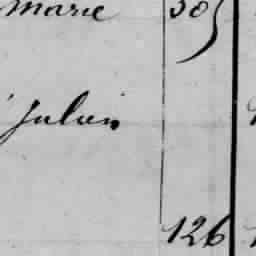 marie 50
Julien
126